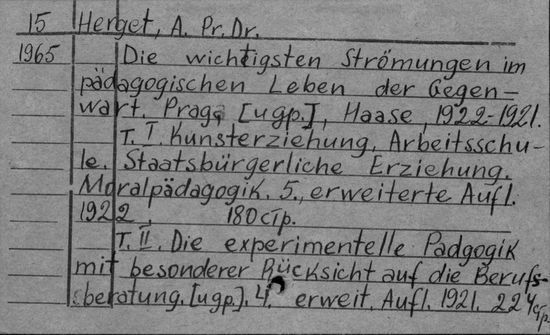 15 Herget, A. Pr. Dr.
1965 Die wichtigsten Strömungen im
pädagogischen Leben der Gegen-
wart. Prag, [изд.], Haase, 1922-1921.
T. I. Kunsterziehung, Arbeitsschu-
le. Staatsbürgerliche Erziehung.
Moralpädagogik. 5., erweiterte Aufl.
1922, 180 стр.
T. II. Die experimentelle Padgogik
mit besonderer Rücksicht auf die Berufs-
beratung. [изд.]. 4. erweit. Aufl. 1921. 224 стр.